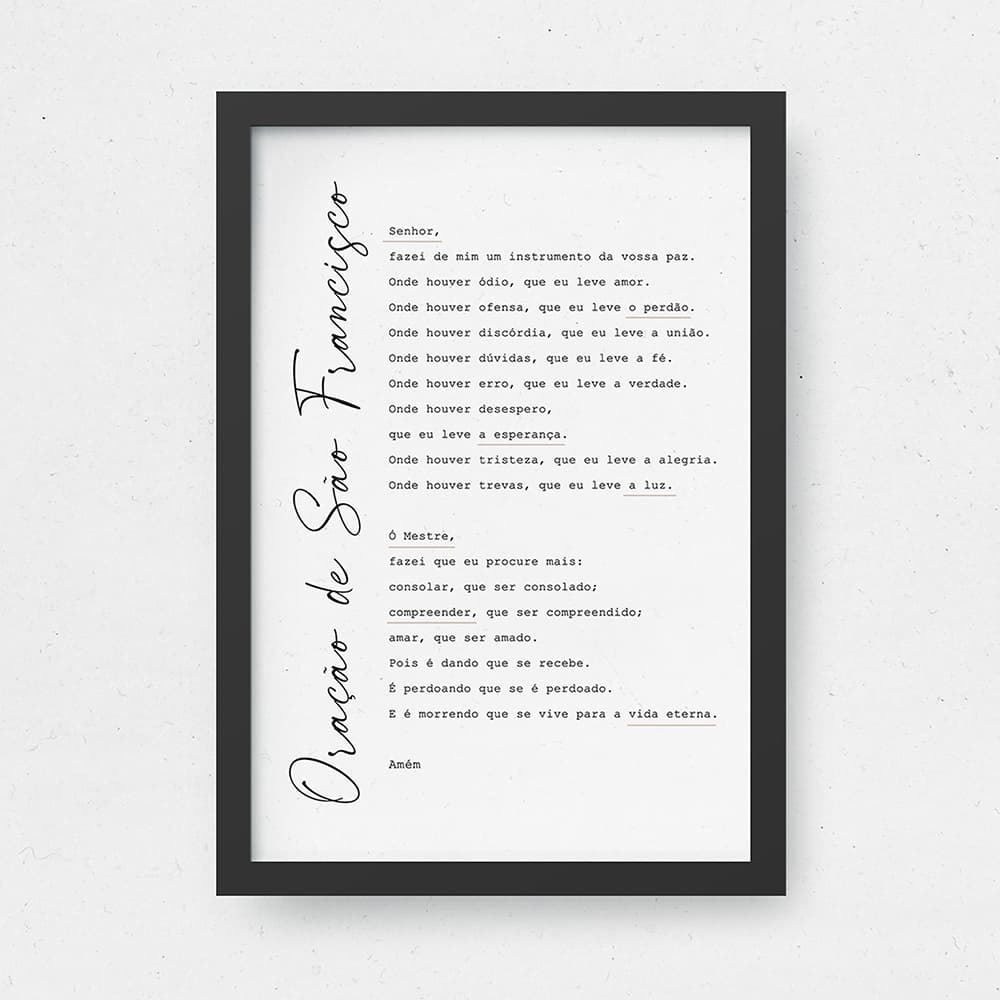 Oração de São Francisco
Senhor,
fazei de mim um instrumento da vossa paz.
Onde houver ódio, que eu leve amor.
Onde houver ofensa, que eu leve o perdão.
Onde houver discórdia, que eu leve a união.
Onde houver dúvidas, que eu leve a fé.
Onde houver erro, que eu leve a verdade.
Onde houver desespero,
que eu leve a esperança.
Onde houver tristeza, que eu leve a alegria.
Onde houver trevas, que eu leve a luz.
Ó Mestre,
fazei que eu procure mais:
consolar, que ser consolado;
compreender, que ser compreendido;
amar, que ser amado.
Pois é dando que se recebe.
É perdoando que se é perdoado.
E é morrendo que se vive para a vida eterna.
Amém